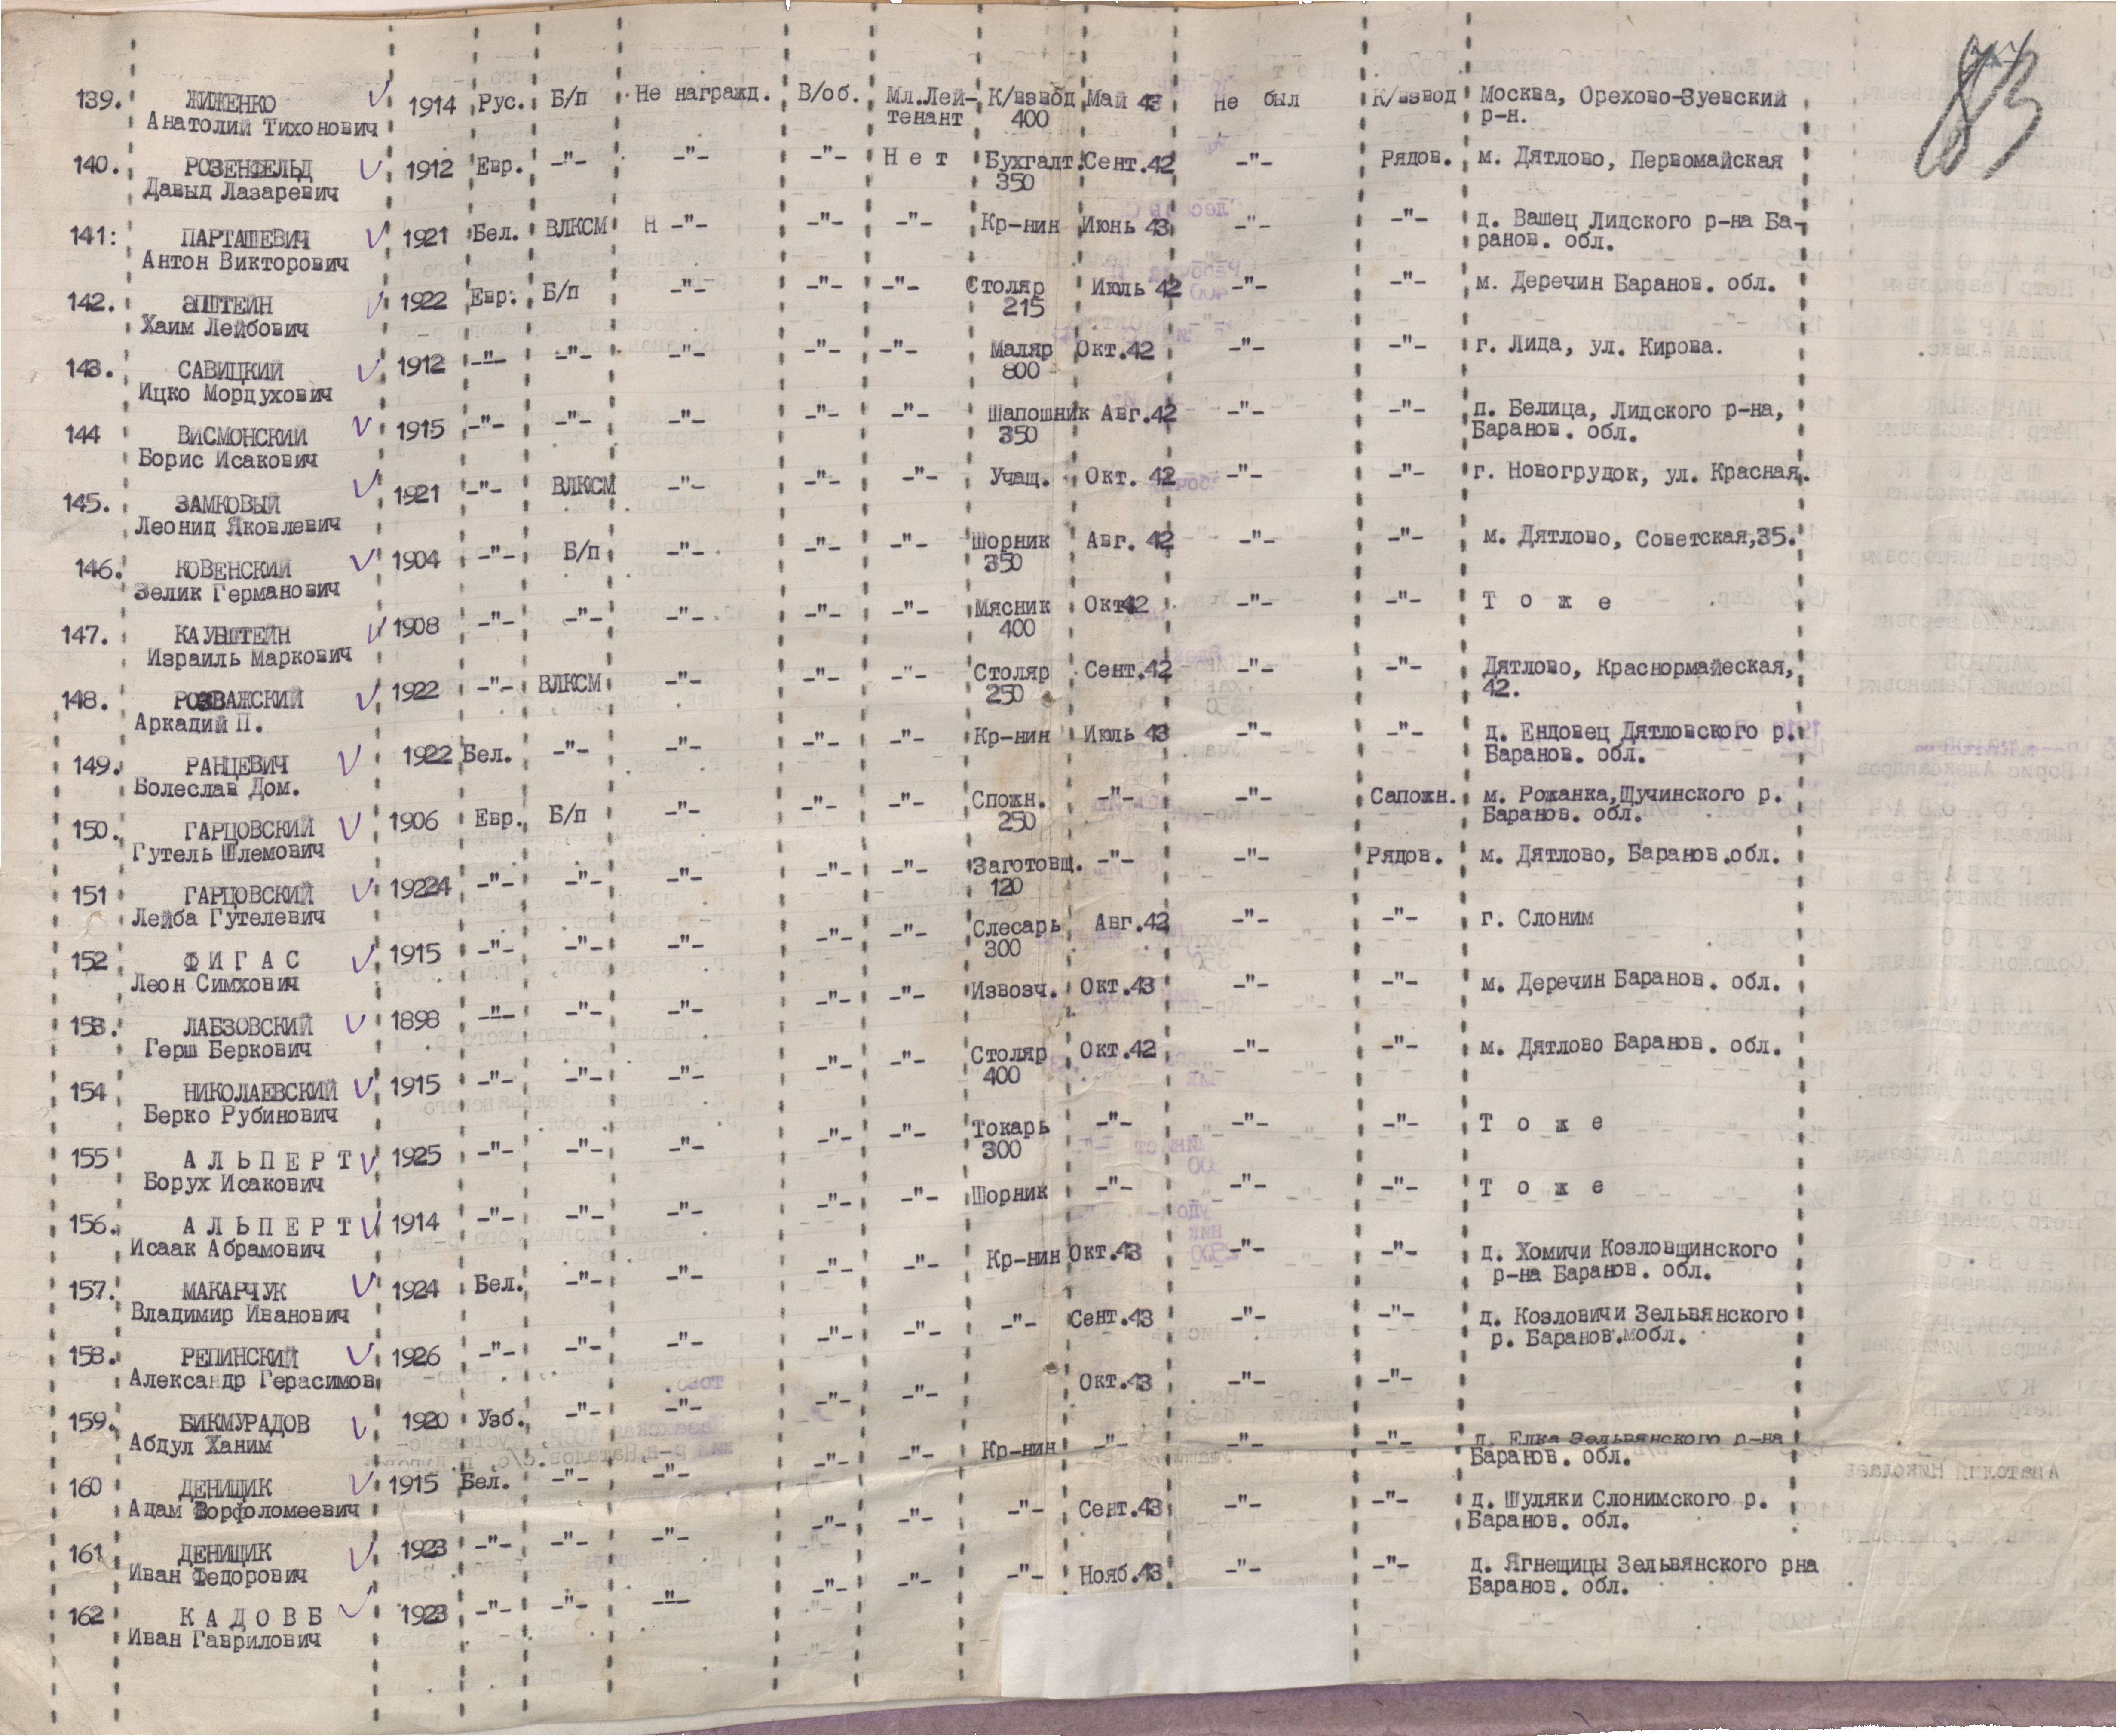 139. ЖИЖЕНКО 1914 Рус. Б/п Не награжд. В/об. Мл.Лей- К/взвод Май 43 Не был К/взвод Москва, Орехово-Зуевский
Анатолий Тихонович тенант 400 р-н.
140. РОЗЕНФЕЛЬД 1912 Евр. -"- -"- -"- Нет Бухгалт. Сент.42 -"- Рядов. м. Дятлово, Первомайская
Давыд Лазаревич 350
141: ПАРТАШЕВИЧ 1921 Бел. ВЛКСМ Н -"- -"- -"- Кр-нин Июнь 43 -"- -"- д. Вашец Лидского р-на Ба-
Антон Викторович ранов. обл.
142. ЭПШТЕЙН 1922 Евр. Б/п -"- -"- -"- Столяр Июль 42 -"- -"- м. Деречин Баранов. обл.
Хаим Лейбович 215
143. САВИЦКИЙ 1912 -"- -"- -"- -"- -"- Маляр Окт.42 -"- -"- г. Лида, ул. Кирова.
Ицко Мордухович 800
144 ВИСМОНСКИЙ 1915 -"- -"- -"- -"- -"- Шапошник Авг.42 -"- -"- п. Белица, Лидского р-на,
Борис Исакович 350 Баранов. обл.
145. ЗАМКОВЫЙ 1921 -"- ВЛКСМ -"- -"- -"- Учащ. Окт. 42 -"- -"- г. Новогрудок, ул. Красная.
Леонид Яковлевич
146. КОВЕНСКИЙ 1904 -"- Б/п -"- -"- -"- Шорник Авг. 42 -"- -"- м. Дятлово, Советская,35.
Зелик Германович 350
147. КАУНШТЕЙН 1908 -"- -"- -"- -"- -"- Мясник Окт42 -"- -"- Т о ж е
Израиль Маркович 400
148. РОЗВАЖСКИЙ 1922 -"- ВЛКСМ -"- -"- -"- Столяр Сент.42 -"- -"- Дятлово, Краснормайеская,
Аркадий П. 250 42.
149. РАНЦЕВИЧ 1922 Бел. -"- -"- -"- -"- Кр-нин Июль 43 -"- -"- д. Ендовец Дятловского р.
Болеслав Дом. Баранов. обл.
150. ГАРЦОВСКИЙ 1906 Евр. Б/п -"- -"- -"- Спожн. -"- -"- Сапожн. м. Рожанка,Щучинского р.
Гутель Шлемович 250 Баранов. обл.
151 ГАРЦОВСКИЙ 19224 -"- -"- -"- -"- -"- Заготовщ. -"- -"- Рядов. м. Дятлово, Баранов.обл.
Лейба Гутелевич 120
152 Ф И Г А С 1915 -"- -"- -"- -"- -"- Слесарь Авг.42 -"- -"- г. Слоним
Леон Симхович 300
153. ЛАБЗОВСКИЙ 1898 -"- -"- -"- -"- -"- Извозч. Окт.43 -"- -"- м. Деречин Баранов. обл.
Герш Беркович
154 НИКОЛАЕВСКИЙ 1915 -"- -"- -"- -"- -"- Столяр Окт.42 -"- -"- м. Дятлово Баранов. обл.
Берко Рубинович 400
155 А Л Ь П Е Р Т 1925 -"- -"- -"- -"- -"- Токарь -"- -"- -"- Т о ж е
Борух Исакович 300
156. А Л Ь П Е Р Т 1914 -"- -"- -"- -"- -"- Шорник -"- -"- -"- Т о ж е
Исаак Абрамович
157. МАКАРЧУК 1924 Бел. -"- -"- -"- -"- Кр-нин Окт.43 -"- -"- д. Хомичи Козловщинского
Владимир Иванович р-на Баранов. обл.
158. РЕПИНСКИЙ 1926 -"- -"- -"- -"- -"- -"- Сент.43 -"- -"- д. Козловичи Зельвянского
Александр Герасимов р. Баранов.мобл.
159. БИКМУРАДОВ 1920 Узб. -"- -"- -"- -"- Окт.43 -"- -"-
Абдул Ханим
160 ДЕНИЩИК 1915 Бел. -"- -"- -"- -"- Кр-нин -"- -"- -"- д. Елка Зельвянского р-на
Адам Ворфоломеевич Баранов. обл.
161 ДЕНИЩИК 1923 -"- -"- -"- -"- -"- -"- Сент.43 -"- -"- д. Шуляки Слонимского р.
Иван Федорович Баранов. обл.
162 К А Д О В Б 1923 -"- -"- -"- -"- -"- -"- Нояб.43 -"- -"- д. Ягнещицы Зельвянского рна
Иван Гаврилович Баранов. обл.